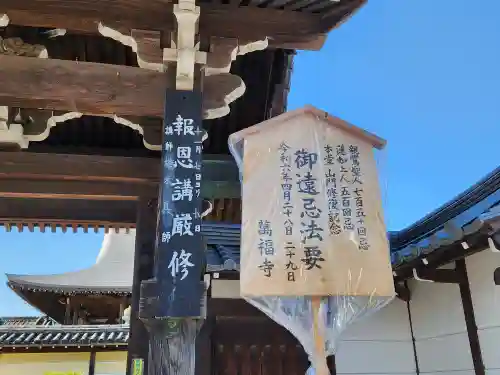 親鸞聖人 七百五十回忌
蓮如上人 五百回忌
本堂 山門修復記念
御遠忌法要
令和六年四月二十八日 二十九日
萬福寺
十一月七日ヨリ九日
報恩講厳修